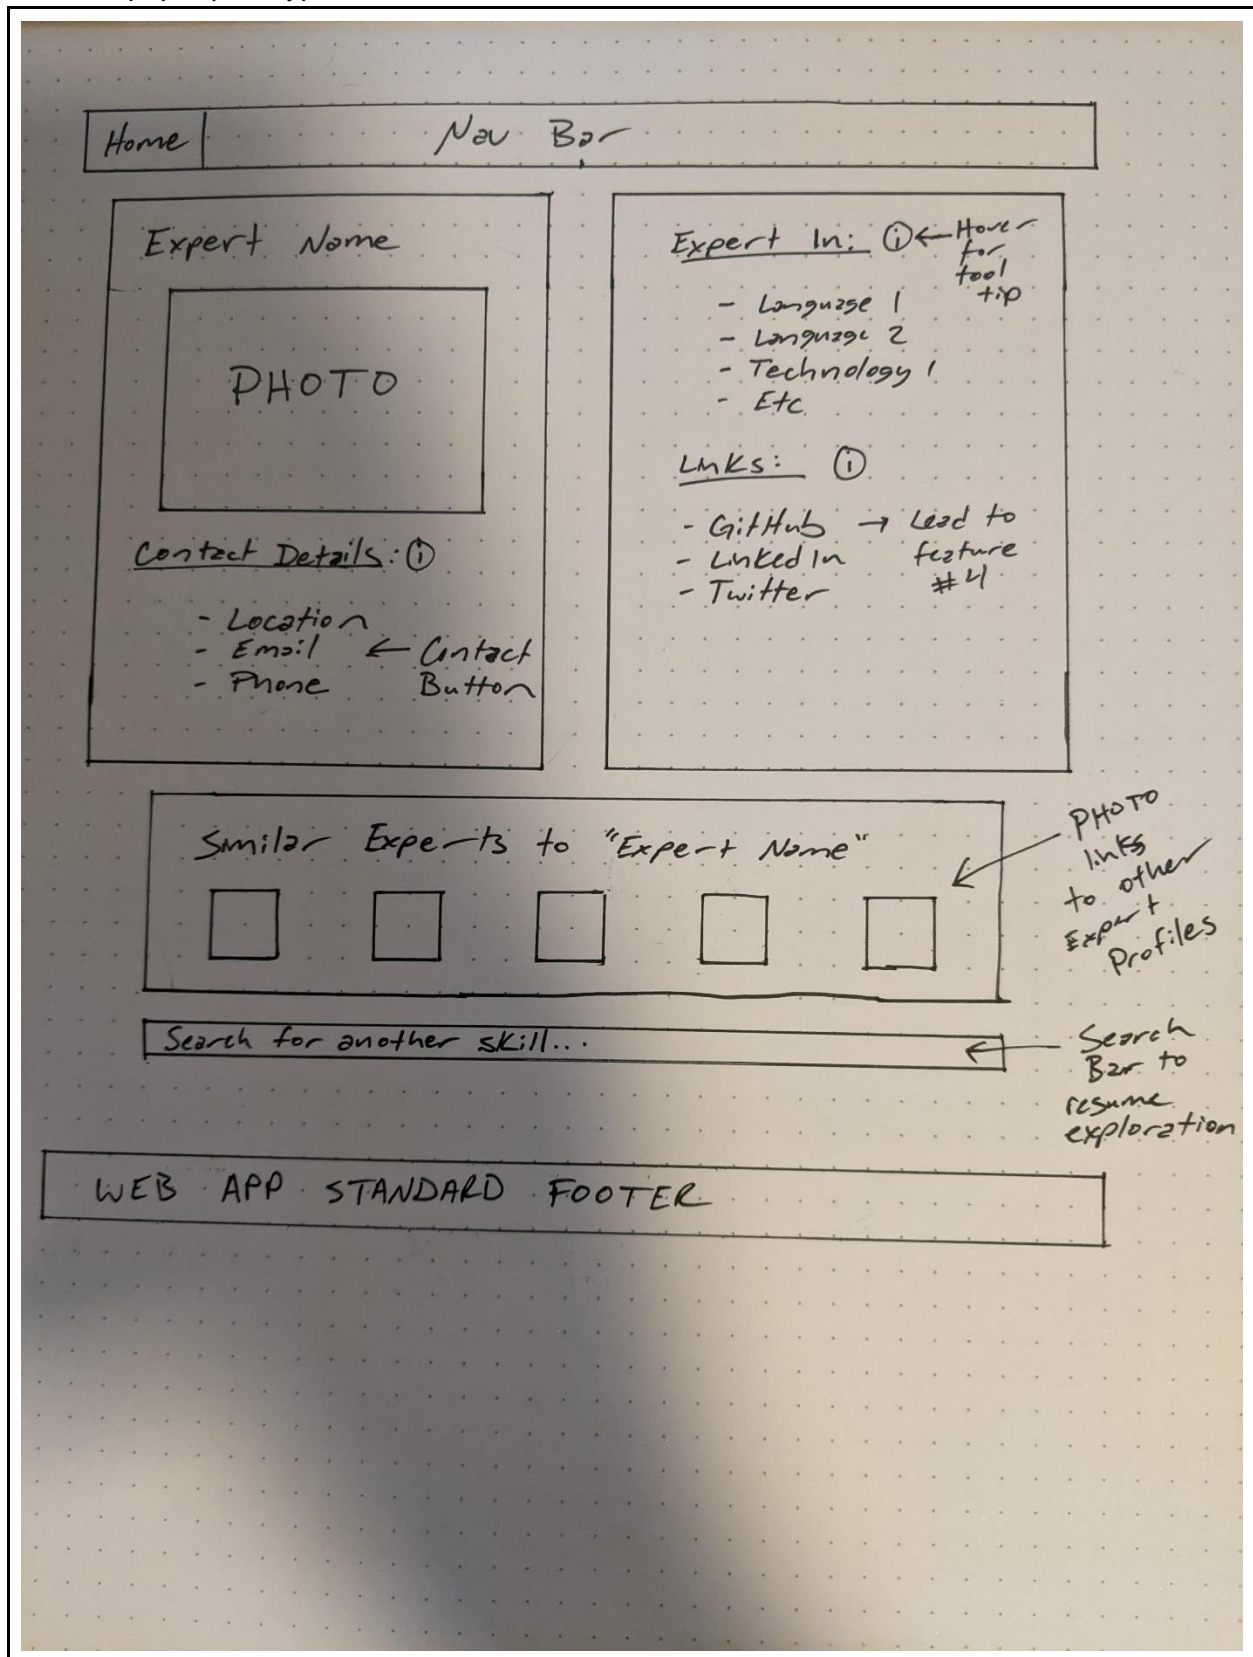 Home
Nav Bar
Expert Name
PHOTO
Contact Details: i
- Location
- Email ← Contact
- Phone Button
Expert In: i ← Hover
for
tool
tip
- Language 1
- Language 2
- Technology 1
- Etc
Links: i
- GitHub → Lead to
- LinkedIn feature
- Twitter #4
Similar Experts to "Expert Name"
PHOTO
links
to other
Expert
Profiles
Search for another skill...
Search
Bar to
resume
exploration
WEB APP STANDARD FOOTER